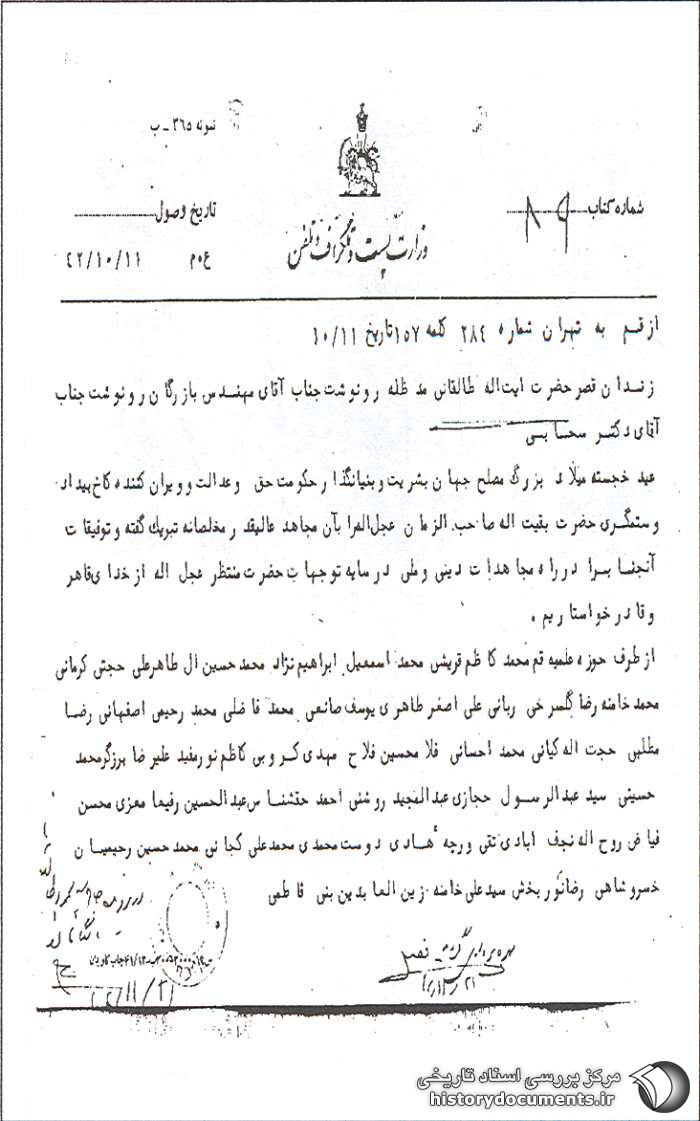 نمونه ۳۶۵ - ب
شماره کتاب ۸۹
تاریخ وصول
وزارت پست و تلگراف و تلفن
ع.م ۴۲/۱۰/۱۱
از قم به تهران شماره ۲۸۴ کلمه ۱۵۷ تاریخ ۱۰/۱۱
زندان قصر حضرت ایت‌اله طالقانی مد ظله رونوشت جناب آقای مهندس بازرگان رونوشت جناب
آقای دکتر سحابی
عید خجسته میلاد بزرگ مصلح جهان بشریت و بنیانگذار حکومت حق و عدالت و ویران کننده کاخ بیداد
و ستمگری حضرت بقیت اله صاحب الزمان عجل‌الفرا بآن مجاهد عالیقدر مخلصانه تبریک گفته و توفیقات
آنجنا برا در راه مجاهدات دینی و ملی در سایه توجهات حضرت منتظر عجل اله از خدای قاهر
و قادر خواستاریم .
از طرف حوزه علمیه قم محمد کاظم قریشی محمد اسمعیل ابراهیم نژاد محمد حسین ال طاهر علی حجتی کرمانی
محمد خامنه رضا گلسرخی ربانی علی اصغر طاهری یوسف صانعی محمد فاضلی محمد رحیمی اصفهانی رضا
مطلبی حجت اله کیانی محمد احسانی فلا محسین فلاح مهدی کروبی کاظم نورمفید علیرضا برزگر محمد
حسینی سید عبدالرسول حجازی عبدالمجید روشنی احمد حتشنا س عبدالحسین رفیعا معزی محسن
فیاض روح اله نجف ابادی تقی ورچه هادی دوست محمدی محمد علی کجانی محمد حسین رحیمیان
خسروشاهی رضا نوربخش سید علی خامنه زین العابدین بنی فاطمی
مرکز بررسی اسناد تاریخی
historydocuments.ir